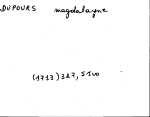 DUPOURS magdalayne
(1713) 327, 5100